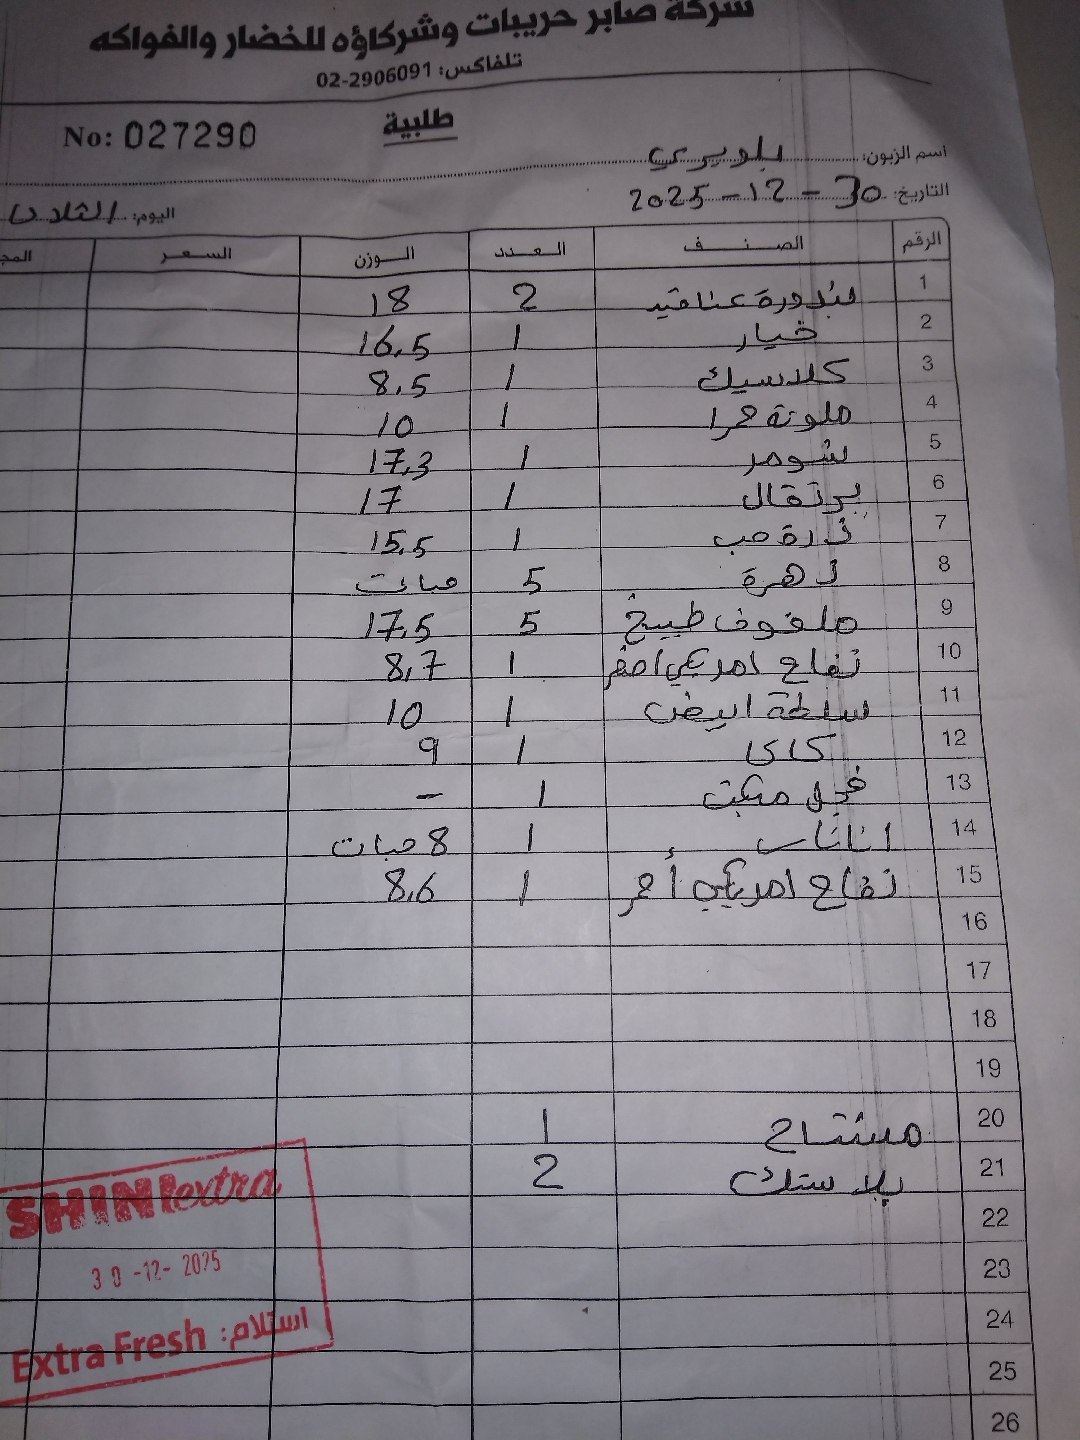 شركة صابر حريبات وشركاؤه للخضار والفواكه
تلفاكس: 02-2906091
No: 027290
طلبية
اسم الزبون: بلويري
التاريخ: 30-12-2025
اليوم: الثلاثا
الرقم الصنف العدد الوزن السعر المج
1 بندورة عناقيد 2 18
2 خيار 1 16.5
3 كلاسيك 1 8.5
4 ملونة حمرا 1 10
5 شومر 1 17.3
6 برتقال 1 17
7 ذرة حب 1 15.5
8 زهرة 5 حبات
9 ملفوف طبيخ 5 17.5
10 تفاح امريكي اصفر 1 8.7
11 سلطة ابيض 1 10
12 كاكا 1 9
13 فجل مبكت 1 -
14 اناناس 1 8 حبات
15 تفاح امريكي أحمر 1 8.6
16
17
18
19
20 مشتاح 1
21 بلاستك 2
22
23
24
25
26
SHINI extra
30-12-2025
استلام: Extra Fresh